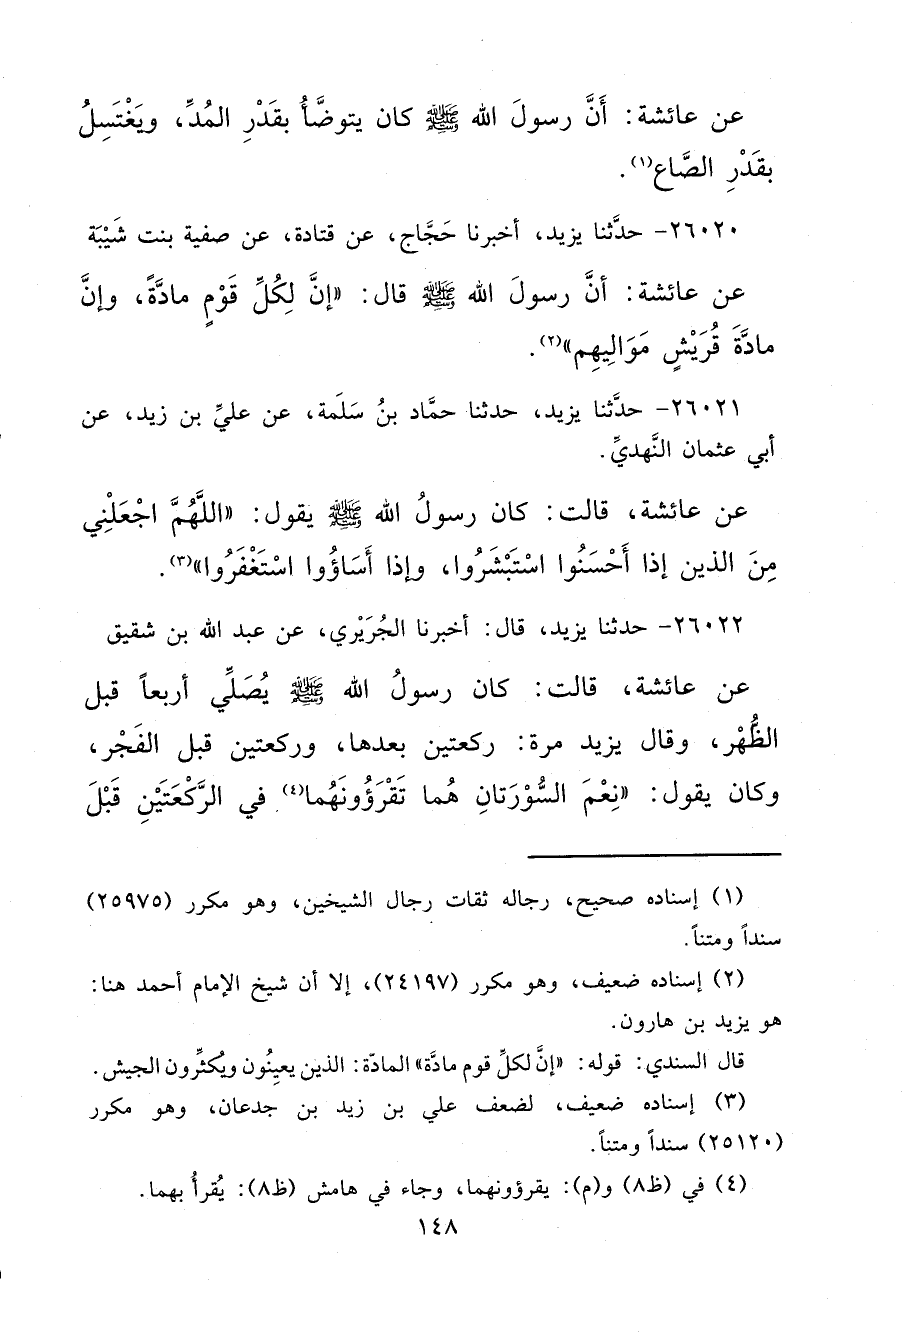 عن عائشة: أَنَّ رسولَ الله ﷺ كان يتوضَّأُ بقَدْرِ المُدِّ، ويَغْتَسِلُ
بقَدْرِ الصَّاع(١).
٢٦٠٢٠- حدَّثنا يزيد، أخبرنا حَجَّاج، عن قتادة، عن صفية بنت شَيْبَة
عن عائشة: أنَّ رسولَ الله ﷺ قال: «إنَّ لِكُلِّ قَوْمٍ مادَّةً، وإنَّ
مادَّةَ قُرَيْشٍ مَوَالِيهِم»(٢).
٢٦٠٢١- حدَّثنا يزيد، حدثنا حمَّاد بنُ سَلَمة، عن عليِّ بن زيد، عن
أبي عثمان النَّهديِّ.
عن عائشة، قالت: كان رسولُ الله ﷺ يقول: «اللَّهُمَّ اجْعَلْنِي
مِنَ الذين إذا أَحْسَنُوا اسْتَبْشَرُوا، وإذا أَسَاؤُوا اسْتَغْفَرُوا»(٣).
٢٦٠٢٢- حدثنا يزيد، قال: أخبرنا الجُرَيْري، عن عبد الله بن شقيق
عن عائشة، قالت: كان رسولُ الله ﷺ يُصَلِّي أربعاً قبل
الظُّهْر، وقال يزيد مرة: ركعتين بعدها، وركعتين قبل الفَجْر،
وكان يقول: «نِعْمَ السُّوْرَتانِ هُما تَقْرَؤُونَهُما(٤) في الرَّكْعَتَيْنِ قَبْلَ
(١) إسناده صحيح، رجاله ثقات رجال الشيخين، وهو مكرر (٢٥٩٧٥)
سنداً ومتناً.
(٢) إسناده ضعيف، وهو مكرر (٢٤١٩٧)، إلا أن شيخ الإمام أحمد هنا:
هو يزيد بن هارون.
قال السندي: قوله: «إنَّ لكلِّ قوم مادَّة» المادّة: الذين يعينُون ويُكثِّرون الجيش.
(٣) إسناده ضعيف، لضعف علي بن زيد بن جدعان، وهو مكرر
(٢٥١٢٠) سنداً ومتناً.
(٤) في (ظ٨) و(م): يقرؤونهما، وجاء في هامش (ظ٨): يُقرأُ بهما.
١٤٨